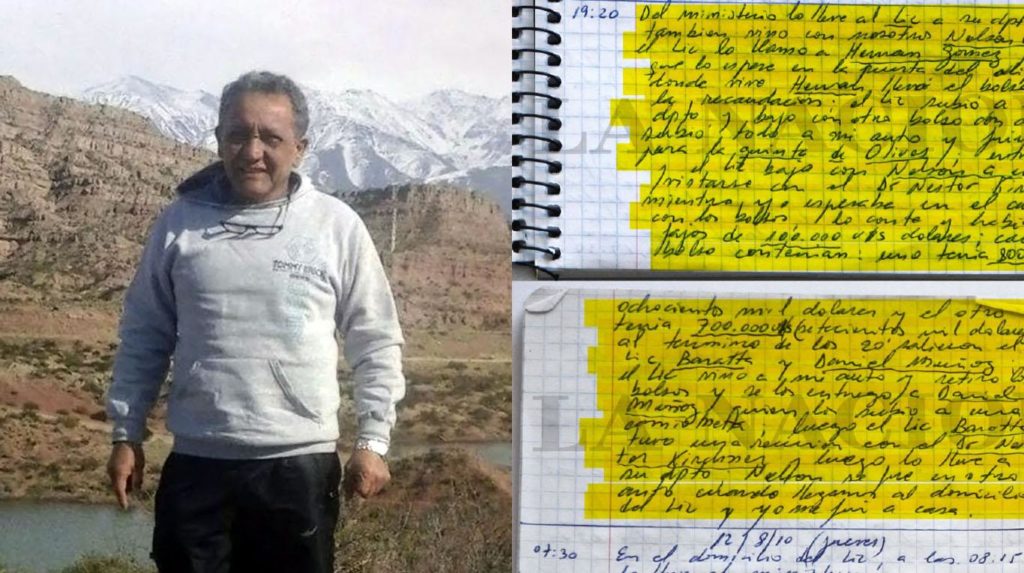 TOMMY STUCK
19:20 Del ministerio lo lleve al Lic a su dpto
tambien vino con nosotros Nelson
el Lic lo llamo a Hernan Gomez
que lo espere en la puerta del
donde vive Hernan
la recaudacion; el Lic subio a
dpto y bajo con otro bolso con
subio todo a mi auto y
para la quinta de Olivos y
el Lic bajo con Nelson a
con el Dr Nestor
mientras yo esperaba en el
con los bolsos lo conte y
de 100.000 U$S dolares;
bolso contenian: uno tenia 800
LA NACION
ochocientos mil dolares y el otro
tenia 700.000 U$S (setecientos mil dolares
al termino de los 20' salieron el
Lic Baratta y Daniel Muñoz
el Lic vino a mi auto y retiro
bolsos y se los entrego a Daniel
Muñoz quien los subio a una
camioneta; luego el Lic Baratta
tuvo una reunion con el Dr Nes
tor Kirchner luego lo lleve a
su dpto Nelson se fue en otro
auto cuando llegamos al domicilio
del Lic y yo me fui a casa.
LA NACION
12/8/10 (jueves)
07:30 En el domicilio del Lic, a las 08.15